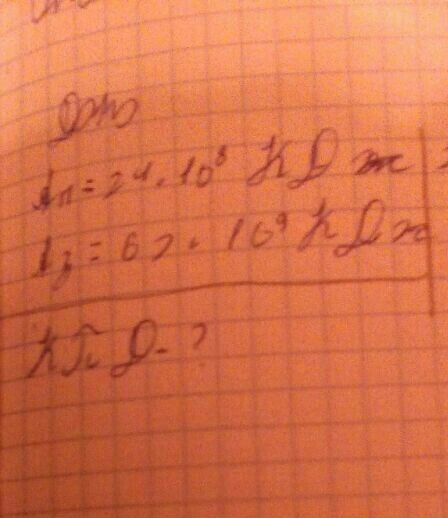 Дано
Aп = 24 · 10⁸ КДж
Aз = 67 · 10⁹ КДж
КПД - ?